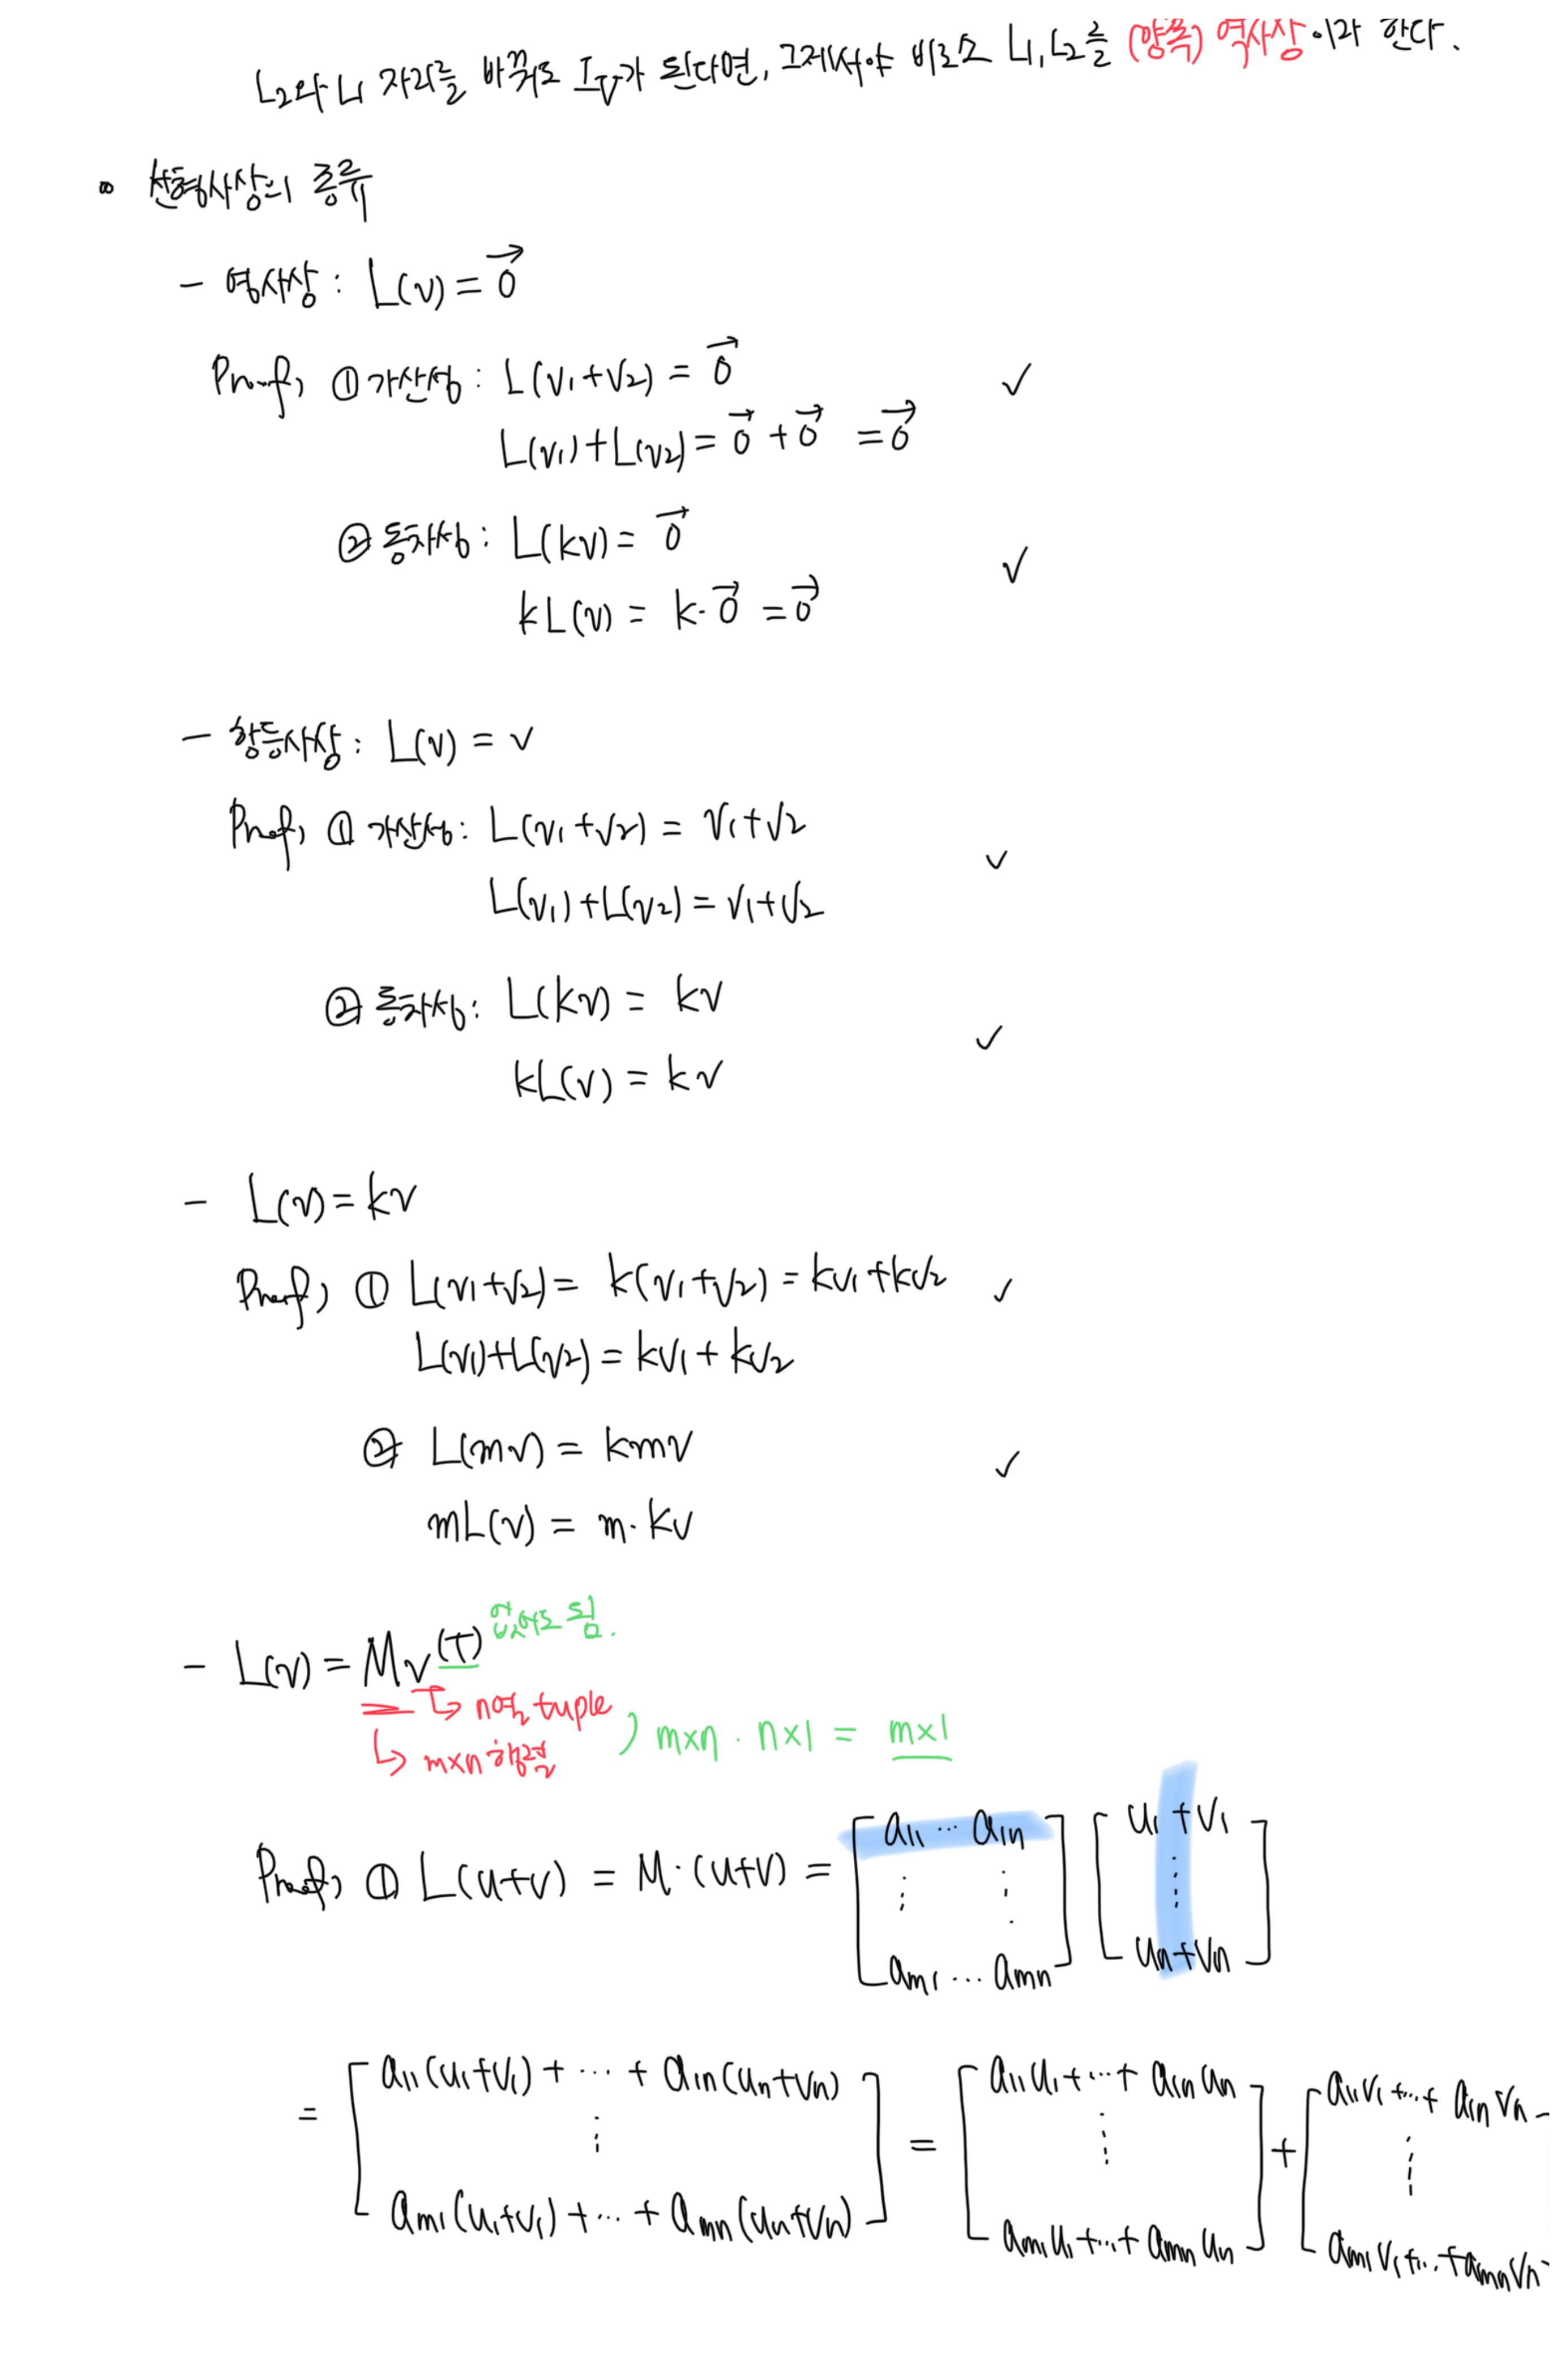 L₂와 L₁ 자리를 바꿔도 I_V가 된다면, 그제서야 비로소 L₁, L₂를 (양쪽) 역사상이라 한다.
선형사상의 종류
- 영사상 : L(v) = 0⃗
Proof) ① 가산성 : L(v₁+v₂) = 0⃗ ✓
L(v₁)+L(v₂) = 0⃗ + 0⃗ = 0⃗
② 동차성 : L(kv) = 0⃗ ✓
kL(v) = k·0⃗ = 0⃗
- 항등사상 : L(v) = v
Proof) ① 가산성 : L(v₁+v₂) = v₁+v₂ ✓
L(v₁)+L(v₂) = v₁+v₂
② 동차성 : L(kv) = kv ✓
kL(v) = kv
- L(v) = kv
Proof) ① L(v₁+v₂) = k(v₁+v₂) = kv₁+kv₂ ✓
L(v₁)+L(v₂) = kv₁+kv₂
② L(mv) = kmv ✓
mL(v) = m·kv
- L(v) = Mv^(T) 없어도 됨.
↳ n여 tuple
↳ m×n 행렬 ) m×n · n×1 = m×1
Proof) ① L(u+v) = M·(u+v) = [a₁₁ ⋯ a₁ₙ ⋮ ⋮ aₘ₁ ⋯ aₘₙ] [u₁+v₁ ⋮ uₙ+vₙ]
= [a₁₁(u₁+v₁) + ⋯ + a₁ₙ(uₙ+vₙ) ⋮ aₘ₁(u₁+v₁) + ⋯ + aₘₙ(uₙ+vₙ)] = [a₁₁u₁+⋯+a₁ₙuₙ ⋮ aₘ₁u₁+⋯+aₘₙuₙ] + [a₁₁v₁+⋯+a₁ₙvₙ ⋮ aₘ₁v₁+⋯+aₘₙvₙ